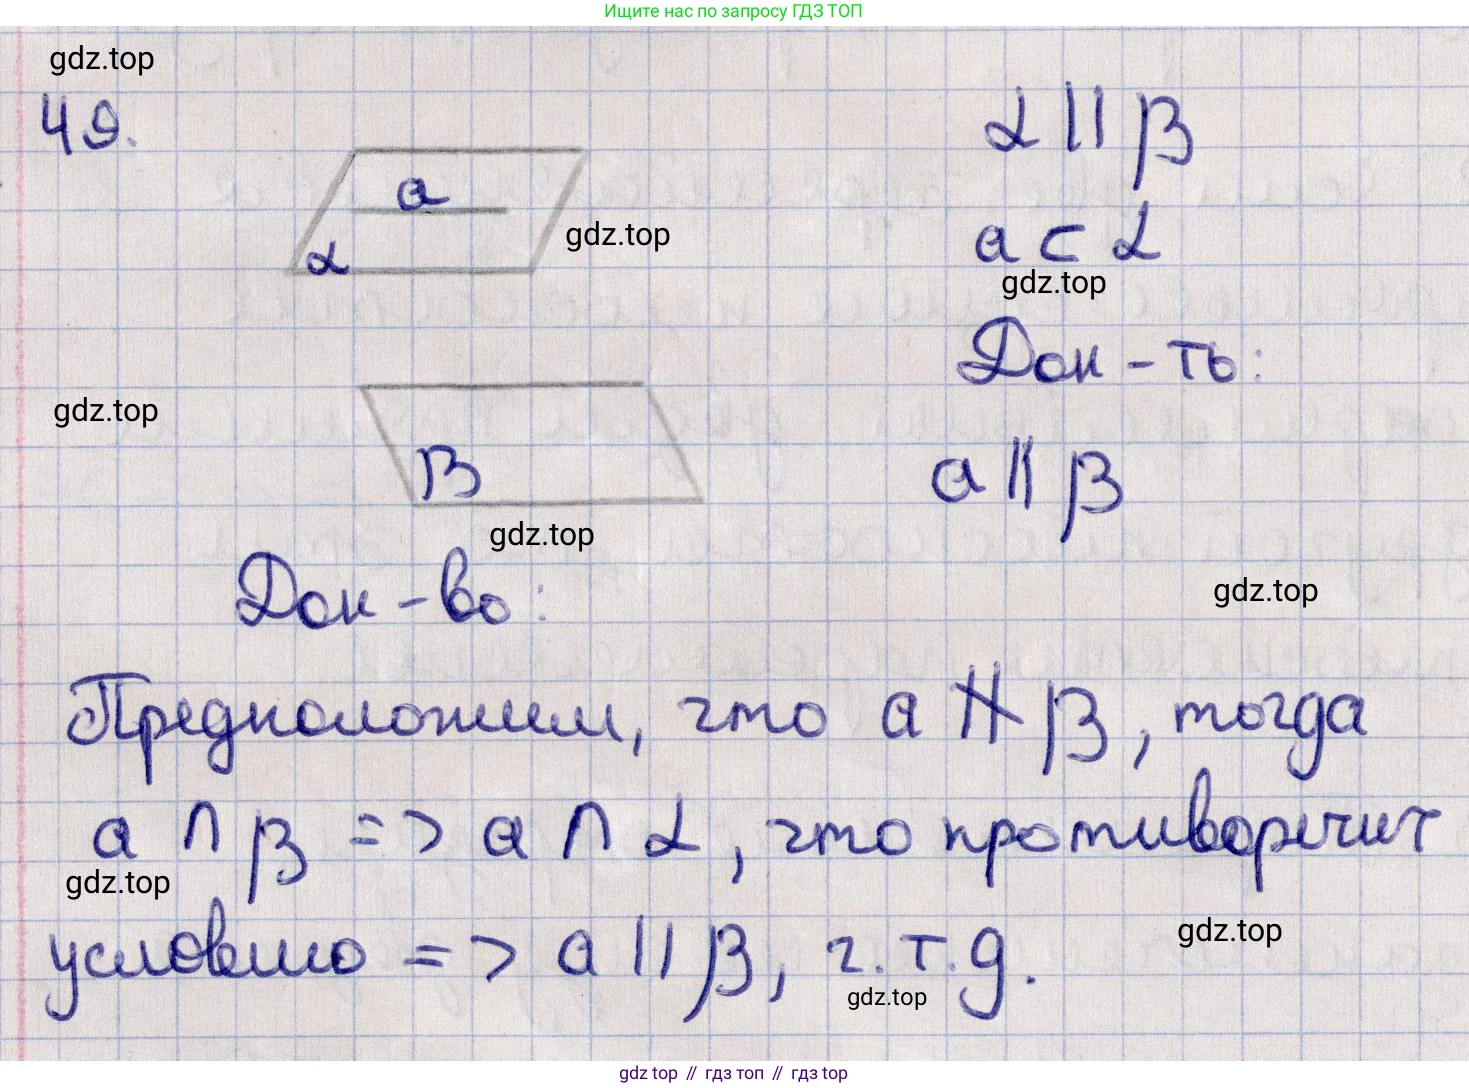 Ищите нас по запросу ГДЗ ТОП
gdz.top
49.
α || β
a
α
gdz.top
a ⊂ α
gdz.top
Док-ть:
gdz.top
β
a || β
gdz.top
Док-во:
gdz.top
Предположим, что a ∦ β, тогда
a ∩ β => a ∩ α, что противоречит
gdz.top
условию => a || β, ч.т.д.
gdz.top
gdz.top
gdz top // гдз топ // гдз top